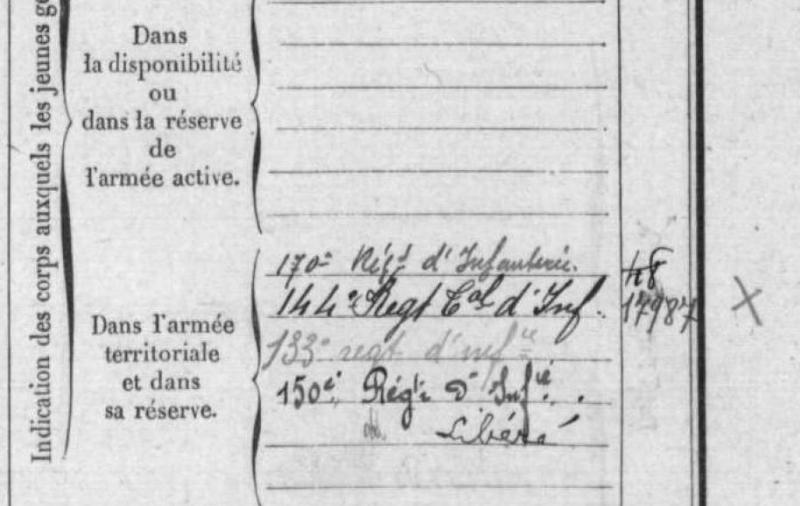 Indication des corps auxquels les jeunes
Dans
la disponibilité
ou
dans la réserve
de
l'armée active.
Dans l'armée
territoriale
et dans
sa réserve.
170e Régt d'Infanterie.
144e Regt Cal d'Inf.
17987
133e regt d'infie
150e Régt d'Infie.
Libéré